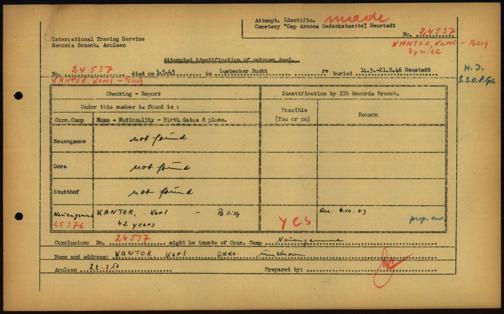 Attempt. Identific. made
Cemetery "Cap Arcona Gedenkstaette", Neustadt
No. 24537
KANTOR, Karl - Berg
Żywiec
International Tracing Service
Records Branch, Arolsen
Attempted identification of unknown dead.
No. 24537 died on 3.5.45 in Luebecker Bucht re buried 14.5.-21.8.46 Neustadt
KANTOR, Karl -
Checking - Report
Identification by ITS Records Branch.
Under this number is found in :
Possible
(Yes or no)
Reason
Conc.Camp
Name - Nationality - Birth dates & place.
Neuengamme
not found
Dora
not found
Stutthof
not found
Neuengamme
25376
KANTOR, Karl - Polig
42 years
yes
Conclusion: No. 24537 might be inmate of Conc. Camp Neuengamme
Name and address: KANTOR Karl unknown
Arolsen
Prepared by: